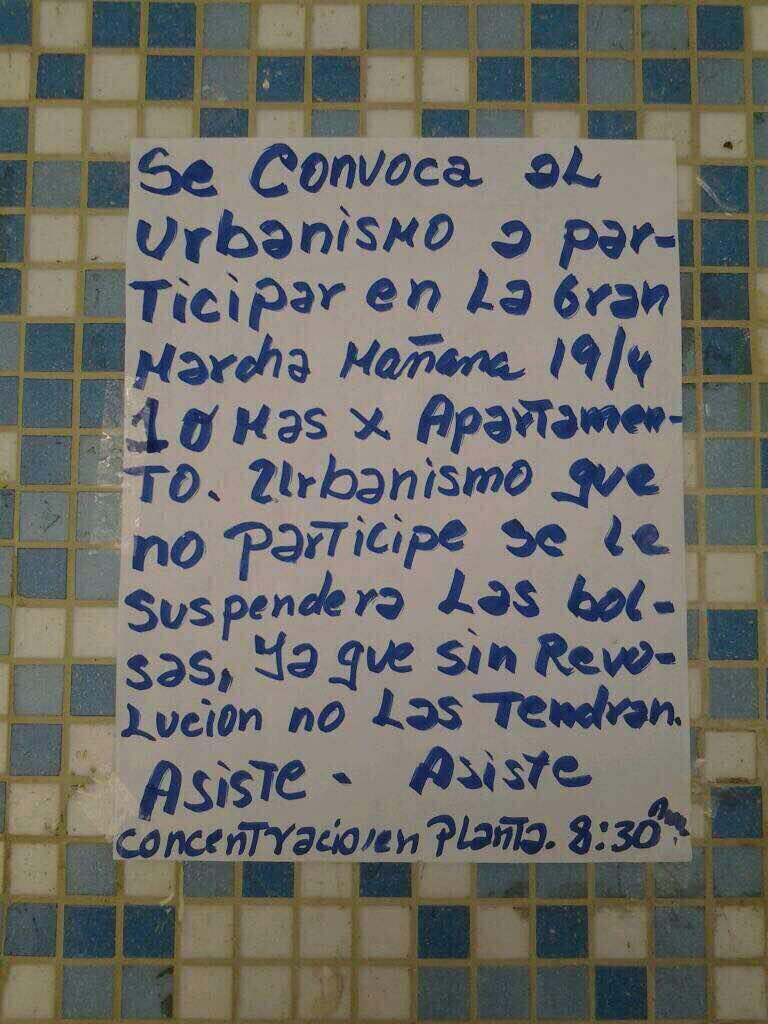 Se Convoca al
Urbanismo a par-
Ticipar en La Gran
Marcha Mañana 19/4
1 o Mas x Apartamen-
To. Urbanismo que
no participe se le
suspendera Las bol-
sas, Ya que sin Revo-
Lucion no Las Tendran.
Asiste - Asiste
concentracion en Planta. 8:30 am.